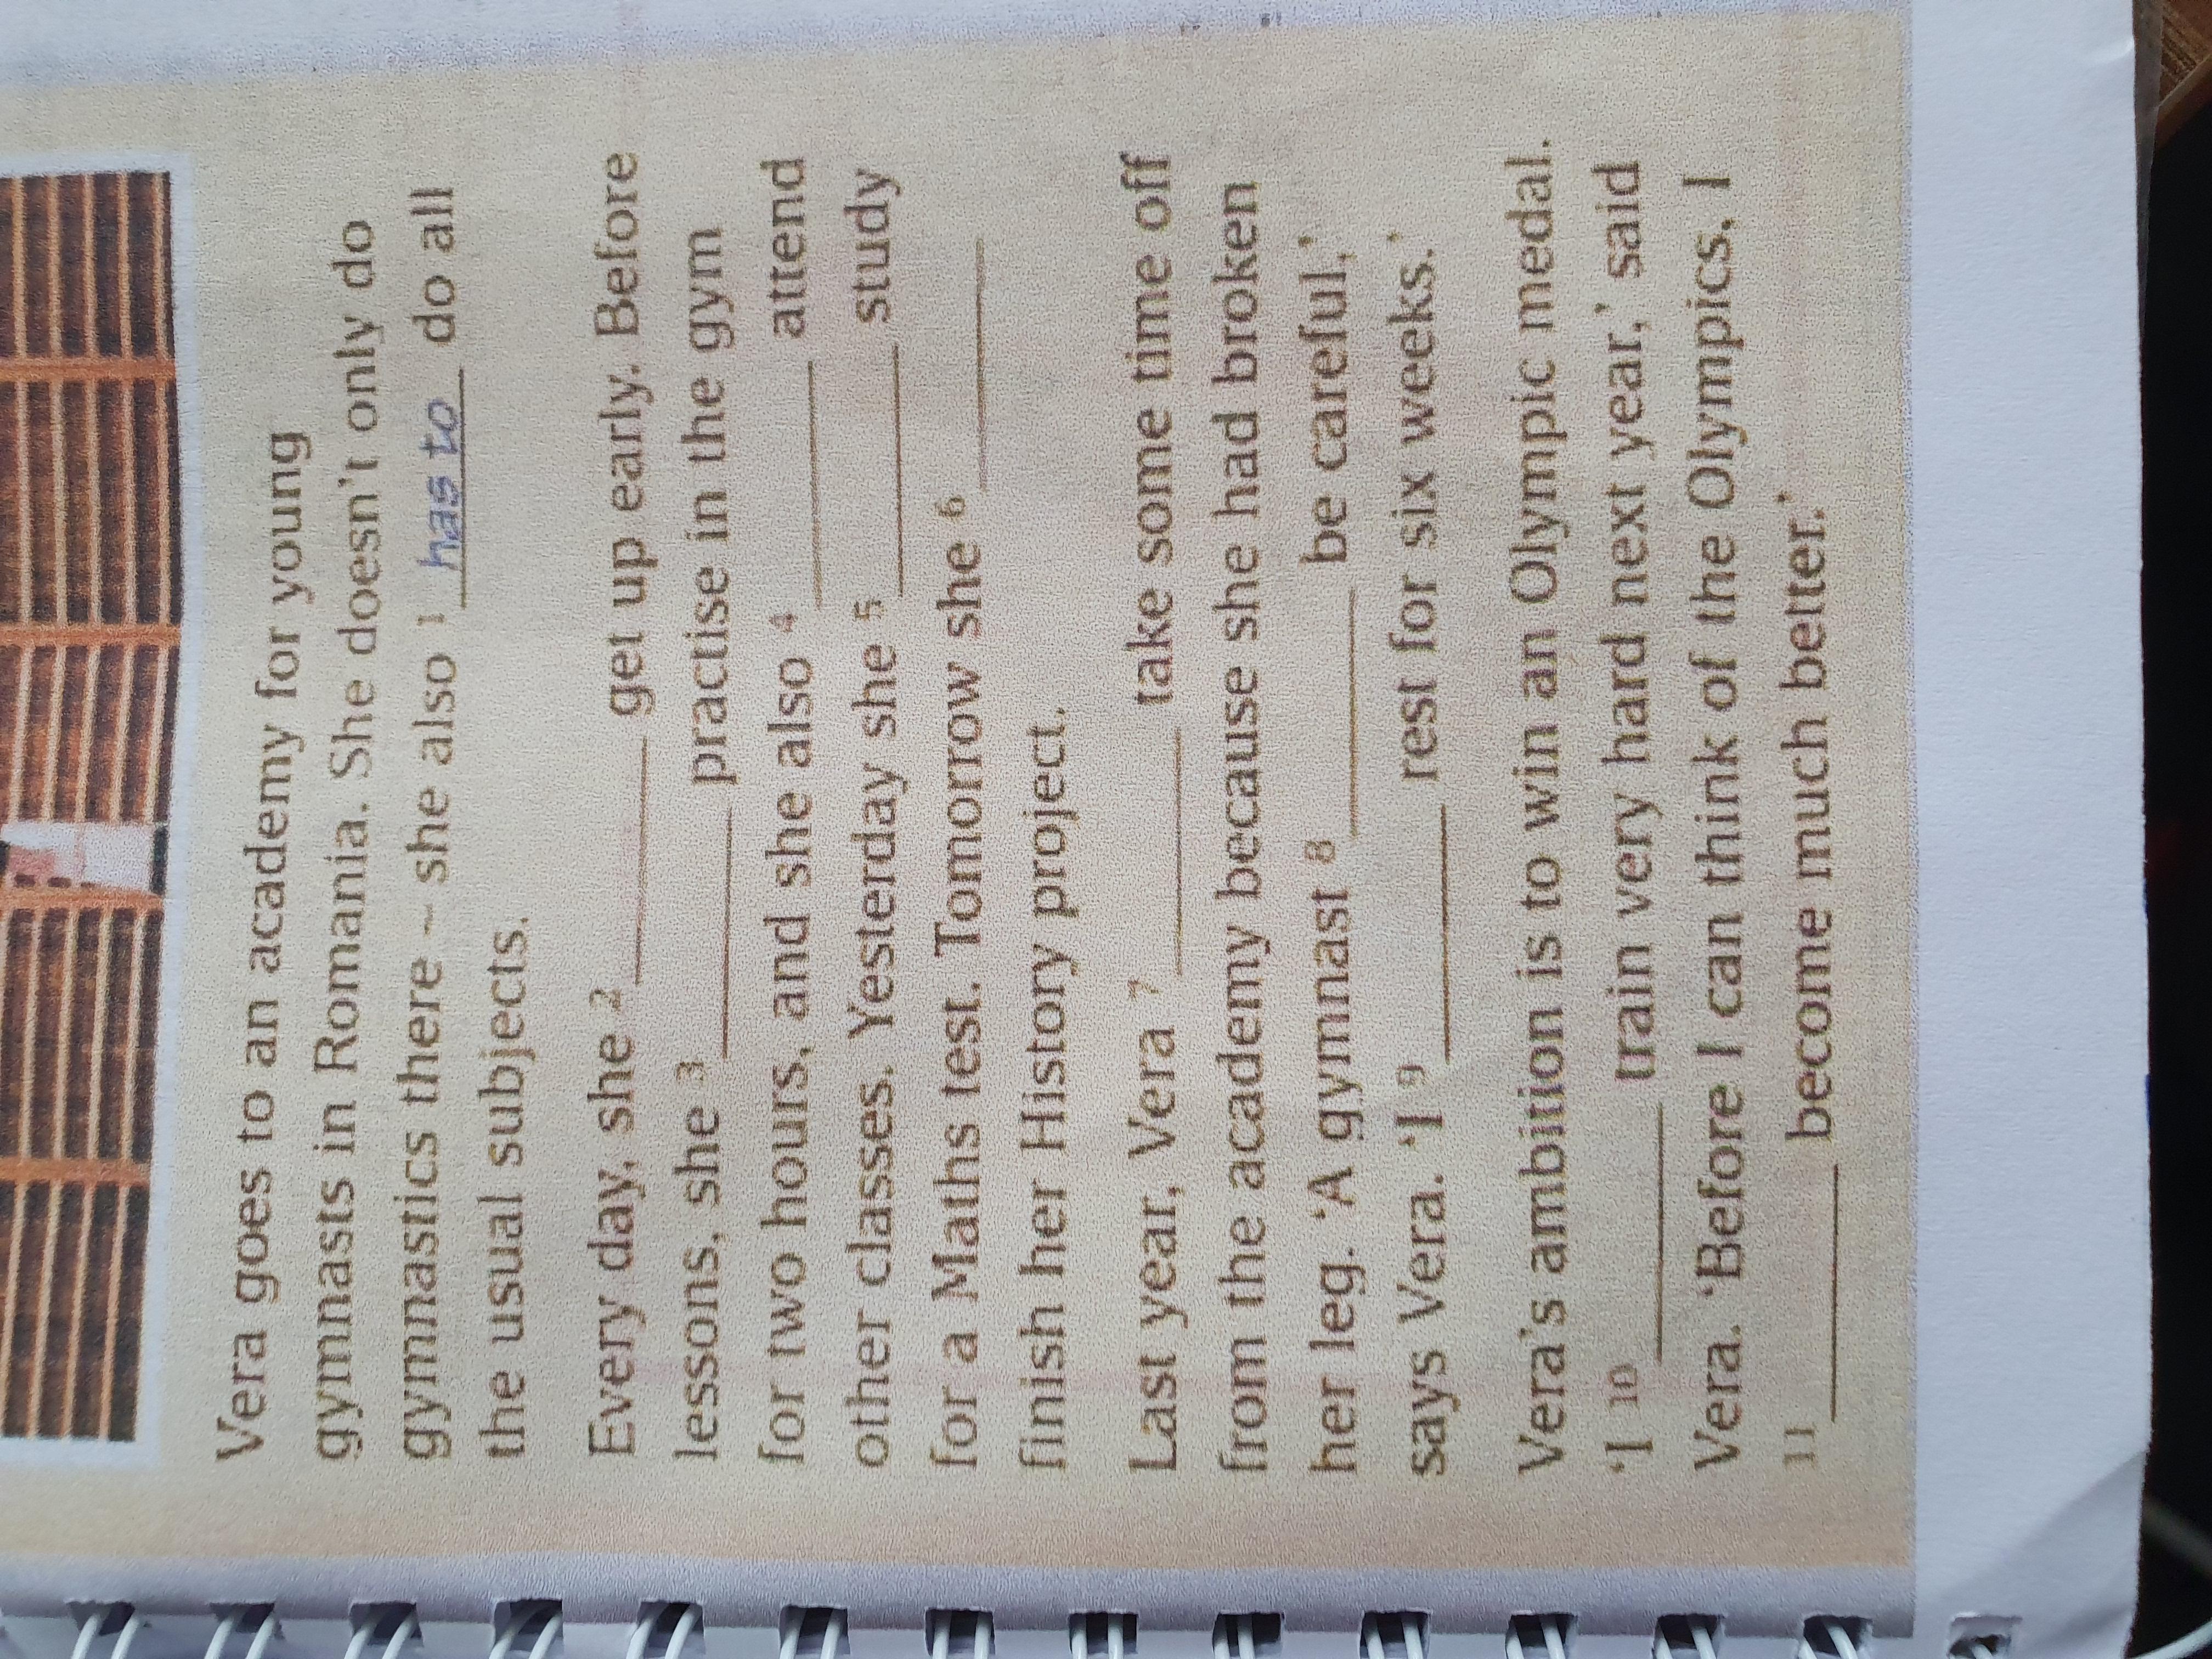 Vera goes to an academy for young
gymnasts in Romania. She doesn't only do
gymnastics there – she also 1 has to do all
the usual subjects.
Every day, she 2 ________ get up early. Before
lessons, she 3 ________ practise in the gym
for two hours, and she also 4 ________ attend
other classes. Yesterday she 5 ________ study
for a Maths test. Tomorrow she 6 ________
finish her History project.
Last year, Vera 7 ________ take some time off
from the academy because she had broken
her leg. 'A gymnast 8 ________ be careful,'
says Vera. 'I 9 ________ rest for six weeks.'
Vera's ambition is to win an Olympic medal.
'I 10 ________ train very hard next year,' said
Vera. 'Before I can think of the Olympics, I
11 ________ become much better.'